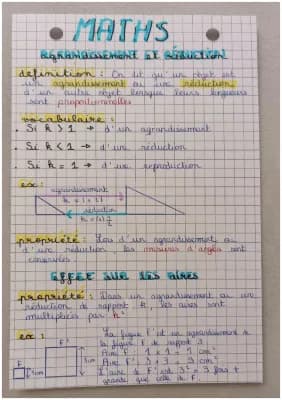 MATHS
AGRANDISSEMENT ET RÉDUCTION
définition : On dit qu'un objet est
un agrandissement ou une réduction
d'un autre objet lorsque leurs longueurs
sont proportionnelles
vocabulaire :
. Si k > 1 → d'un agrandissement
. Si k < 1 → d'une réduction
. Si k = 1 → d'une reproduction
ex :
agrandissement
réduction
propriété : Lors d'un agrandissement ou
d'une réduction, les mesures d'angles sont
conservées
EFFET SUR LES AIRES
propriété : Dans un agrandissement ou une
réduction de rapport k, les aires sont
multipliées par k²
ex :
La figure F' est un agrandissement de
la figure F de rapport 3
F'
Aire F : 1 x 1 = 1 cm²
F
3cm
Aire F' : 3 x 3 = 9 cm²
1cm
L'aire de F' est 3² = 9 fois +
grande que celle de F.